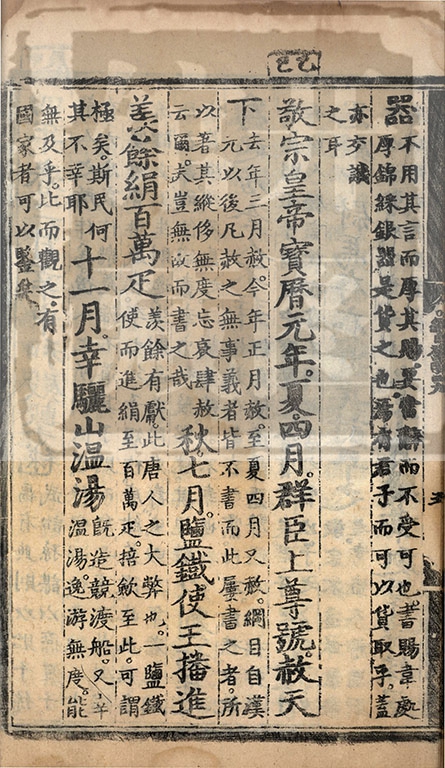 乙巳
器不用其言而厚其賜當而不受可也書賜韋處
厚錦綵銀器是貨之也焉有君子而可以貨取乎蓋
亦交譏
之耳
敬宗皇帝寶曆元年。夏。四月。群臣上尊號。赦天
下去年三月赦。今年正月赦。至夏四月又赦。綱目自漢
元以後凡赦之無事義者皆不書而此屢書之者。所
以著其縱侈無度忘哀肆赦
云爾。夫豈無故而書之哉
秋。七月。鹽鐵使王播進
羨餘絹百萬疋羨餘有獻。此唐人之大弊也。一鹽鐵
使而進絹至百萬疋。掊歛至此。可謂
極矣。斯民何
其不幸耶
十一月。幸驪山温湯既造競渡船。又幸
温湯。逸游無度。能
無及乎。此而觀之。有
國家者可以鑒矣